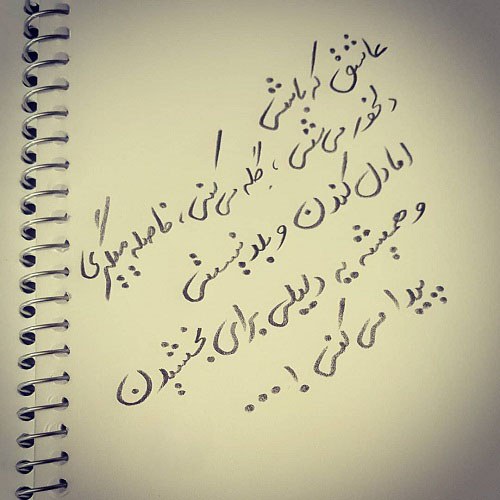 عاشق که باشی
دلخور می‌شی، گله می‌کنی، فاصله میگیری
اما دل کندن و بلد نیستی
و همیشه یه دلیلی برای بخشیدن
پیدا می‌کنی !...